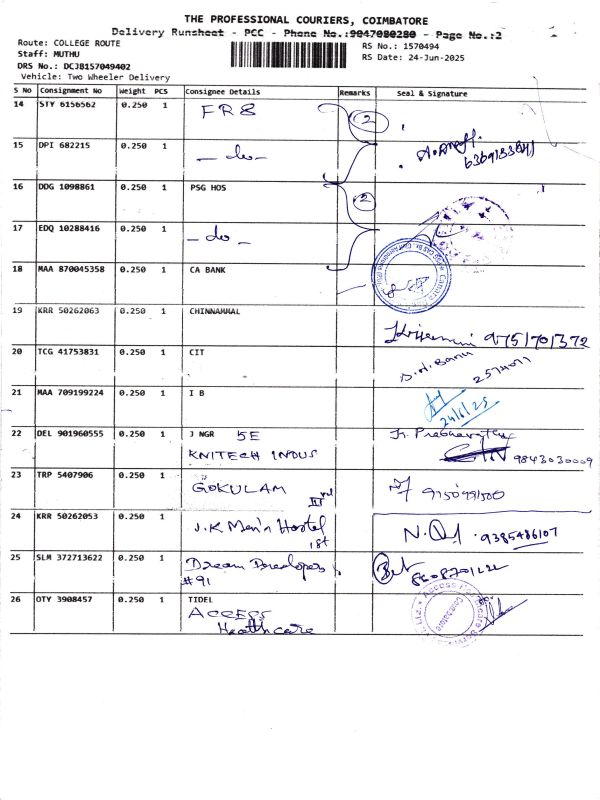 THE PROFESSIONAL COURIERS, COIMBATORE
Delivery Runsheet - PCC - Phone No.:9047080280 - Page No.:2
Route: COLLEGE ROUTE
Staff: MUTHU
DRS No.: DCJ8157049402
Vehicle: Two Wheeler Delivery
RS No.: 1570494
RS Date: 24-Jun-2025
S No Consignment No Weight PCS Consignee Details Remarks Seal & Signature
14 STY 6156562 0.250 1 FR8 2
15 DPI 682215 0.250 1 - do -
16 DDG 1098861 0.250 1 PSG HOS 2
17 EDQ 10288416 0.250 1 - do -
18 MAA 870045358 0.250 1 CA BANK
19 KRR 50262063 0.250 1 CHINNAMMAL 9751701372
20 TCG 41753831 0.250 1 CIT
21 MAA 709199224 0.250 1 I B 24/6/25
22 DEL 901960555 0.250 1 J NGR 5E
KNITECH INDUS 9843030009
23 TRP 5407906 0.250 1 GOKULAM
24 KRR 50262053 0.250 1 J.K Men's Hostel 9385486107
1st
25 SLM 372713622 0.250 1 Dream Developers
#91
26 OTY 3908457 0.250 1 TIDEL
ACCESS
Healthcare